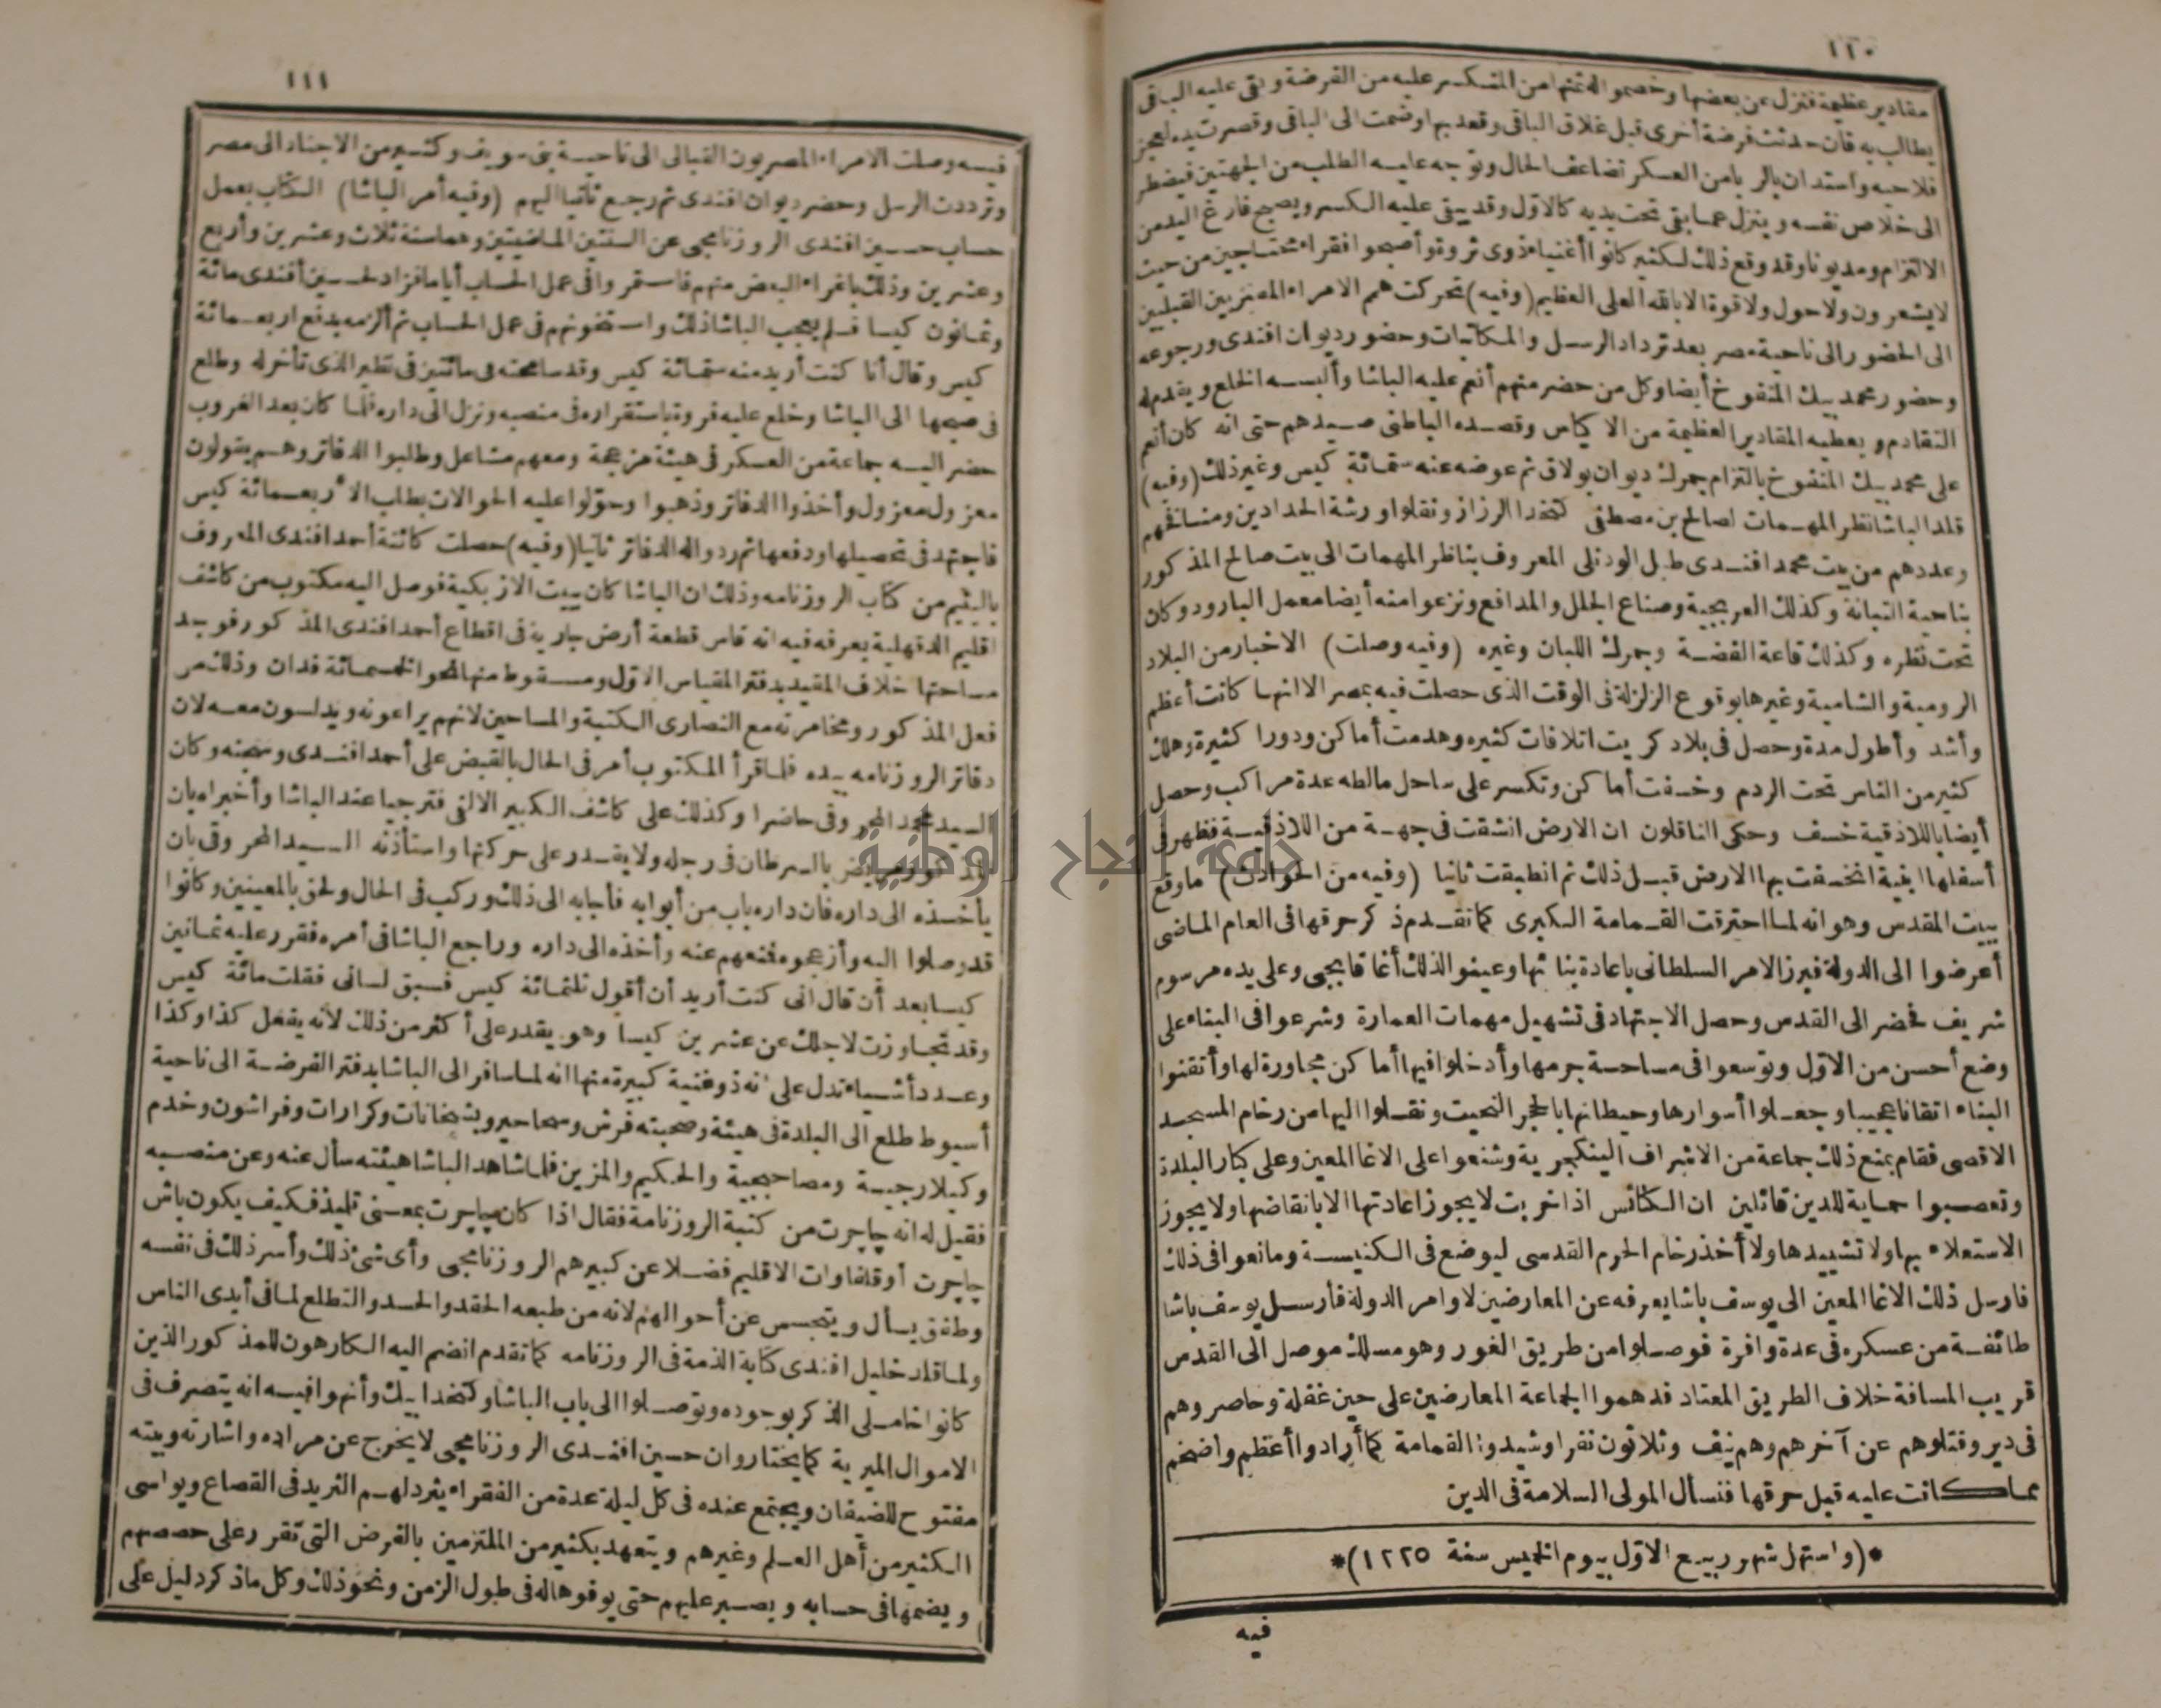 ١١٠
مقادير عظيمة فنزل عن بعضها وخصموا له ثمنها من المنكسر عليه من الفرضة وبقى عليه الباقى
يطالب به فان حدثت فرضة أخرى قبل غلاق الباقى وقعد بها وضمت الى الباقى وقصرت يده لعجز
فلاحيه واستدان بالربا من العسكر تضاعف الحال وتوجه عليه الطلب من الجهتين فيضطر
الى خلاص نفسه وينزل عما بقى تحت يديه كالاوّل وقد يبقى عليه الكسر ويصبح فارغ اليد من
الالتزام ومديونا وقد وقع ذلك لكثير كانوا أغنياء ذوى ثروة وأصبحوا فقراء محتاجين من حيث
لا يشعرون ولا حول ولا قوة الا بالله العلى العظيم (وفيه) تحركت همم الامراء المصريين القبليين
الى الحضور الى ناحية مصر بعد ترداد الرسل والمكاتبات وحضور ديوان افندى ورجوعه
وحضور محمد بيك المنفوخ أيضا وكل من حضر منهم أنعم عليه الباشا وألبسه الخلع ويقدم له
التقادم ويعطيه المقادير العظيمة من الاكياس وقصده الباطنى صيدهم حتى انه كان أنعم
على محمد بيك المنفوخ بالتزام جمرك ديوان بولاق ثم عوضه عنه ستمائة كيس وغير ذلك (وفيه)
قلد الباشا نظر المهمات لصالح بن مصطفى كتخدا الرزاز ونقلوا ورشة الحدادين ومنافخهم
وعددهم من بيت محمد افندى طبل الودنلى المعروف بناظر المهمات الى بيت صالح المذكور
بناحية التبانة وكذلك العربجية وصناع الجلل والمدافع ونزعوا منه أيضا معمل البارود وكان
تحت نظره وكذلك قاعة الفضة وجمرك اللبان وغيره (وفيه وصلت) الاخبار من البلاد
الرومية والشامية وغيرها بوقوع الزلزلة فى الوقت الذى حصلت فيه بمصر الا انها كانت أعظم
وأشد وأطول مدة وحصل فى بلاد كريت اتلافات كثيره وهدمت أماكن ودورا كثيرة وهلك
كثير من الناس تحت الردم وخسفت أماكن وتكسر على ساحل مالطه عدة مراكب وحصل
أيضا باللاذقية خسف وحكى الناقلون ان الارض انشقت فى جهة من اللاذقية فظهر فى
أسفلها ابنية انخسفت بها الارض قبل ذلك ثم انطبقت ثانيا (وفيه من الحوادث) ما وقع
ببيت المقدس وهو انه لما احترقت القمامة الكبرى كما تقدم ذكر حرقها فى العام الماضى
أعرضوا الى الدولة فبرز الامر السلطانى باعادة بنائها وعينوا لذلك أغا قابجى وعلى يده مرسوم
شريف فحضر الى القدس وحصل الاجتهاد فى تشهيل مهمات العمارة وشرعوا فى البناء على
وضع أحسن من الاوّل وتوسعوا فى مساحة جرمها وأدخلوا فيها أماكن مجاورة لها وأتقنوا
البناء اتقانا عجيبا وجعلوا أسوارها وحيطانها بالحجر النحيت ونقلوا اليها من رخام المسجد
الاقصى فقام بمنع ذلك جماعة من الاشراف الينكجرية وشنعوا على الاغا المعين وعلى كبار البلدة
وتعصبوا حماية للدين قائلين ان الكنائس اذا خربت لا يجوز اعادتها الا بانقاضها ولا يجوز
الاستعلاء بها ولا تشييدها ولا أخذ رخام الحرم القدسى ليوضع فى الكنيسة ومانعوا فى ذلك
فارسل ذلك الاغا المعين الى يوسف باشا يعرفه عن المعارضين لاوامر الدولة فأرسل يوسف باشا
طائفة من عسكره فى عدة وافرة فوصلوا من طريق الغور وهو مسلك موصل الى القدس
قريب المسافة خلاف الطريق المعتاد فدهموا الجماعة المعارضين على حين غفلة وحاصروهم
فى دير وقتلوهم عن آخرهم وهم نيف وثلاثون نفرا وشيدوا القمامة كما أرادوا أعظم واضخم
مما كانت عليه قبل حرقها فنسأل المولى السلامة فى الدين
*(واستهل شهر ربيع الاوّل بيوم الخميس سنة ١٢٢٥)*
فيه
١١١
فيه وصلت الامراء المصريون القبالى الى ناحية بنى سويف وكثير من الاجناد الى مصر
وترددت الرسل وحضر ديوان افندى ثم رجع ثانيا اليهم (وفيه أمر الباشا) الكتاب بعمل
حساب حسين افندى الروزنامجى عن السنتين الماضيتين وهما سنة ثلاث وعشرين وأربع
وعشرين وذلك باغراء البعض منهم فاستمروا فى عمل الحساب أياما فزاد لحسين أفندى مائة
وثمانون كيسا فلم يعجب الباشا ذلك واستخونهم فى عمل الحساب ثم ألزمه بدفع اربعمائة
كيس وقال أنا كنت أريد منه ستمائة كيس وقد سامحته فى مائتين فى نظير الذى تأخر له وطلع
فى صبحها الى الباشا وخلع عليه فروة باستقراره فى منصبه ونزل الى داره فلما كان بعد الغروب
حضر اليه جماعة من العسكر فى هيئة مزعجة ومعهم مشاعل وطلبوا الدفاتر وهم يقولون
معزول معزول وأخذوا الدفاتر وذهبوا وحوّلوا عليه الحوالات بطلب الأربعمائة كيس
فاجتهد فى تحصيلها ودفعها ثم ردوا له الدفاتر ثانيا (وفيه) حصلت كائنة أحمد افندى المعروف
باليتيم من كتاب الروزنامه وذلك ان الباشا كان ببيت الازبكية فوصل اليه مكتوب من كاشف
اقليم الدقهلية يعرفه فيه انه قاس قطعة أرض جارية فى اقطاع أحمد افندى المذكور فوجد
مساحتها خلاف المقيد بدفتر المقياس الاوّل ومسقوط منها نحو الخمسمائة فدان وذلك من
فعل المذكور ومخامرته مع النصارى الكتبة والمساحين لانهم يراعونه ويدلسون معه لان
دفاتر الروزنامه بيده فلما قرأ المكتوب أمر فى الحال بالقبض على أحمد افندى وسجنه وكان
السيد محمد المحروقى حاضرا وكذلك على كاشف الكبير الالفى فترجيا عند الباشا وأخبراه بان
المذكور مريض بالسرطان فى رجله ولا يقدر على حركتها واستأذنه السيد المحروقى بان
يأخذه الى داره فان داره باب من أبوابه فأجابه الى ذلك وركب فى الحال ولحق بالمعينين وكانوا
قد وصلوا اليه وأزعجوه فمنعهم عنه وأخذه الى داره وراجع الباشا فى أمره فقرر عليه ثمانين
كيسا بعد أن قال انى كنت أريد أن أقول ثلثمائة كيس فسبق لسانى فقلت مائة كيس
وقد تجاوزت لاجلك عن عشرين كيسا وهو يقدر على أكثر من ذلك لأنه يفعل كذا وكذا
وعدد أشياء تدل على انه ذو غنية كبيرة منها انه لما سافر الى الباشا بدفتر الفرضة الى ناحية
أسيوط طلع الى البلدة فى هيئة وصحبته فرش وسحاحير وبشخانات وكرارات وفراشون وخدم
وكيلارجية ومصاحبجية والحكيم والمزين فلما شاهد الباشا هيئته سأل عنه وعن منصبه
فقيل له انه چاچرت من كتبة الروزنامة فقال اذا كان چاچرت بمعنى تلميذ فكيف يكون باش
چاچرت أو قلفاوات الاقليم فضلا عن كبيرهم الروزنامجى وأى شئ ذلك وأسر ذلك فى نفسه
وطفق يسأل ويتجسس عن أحوالهم لانه من طبعه الحقد والحسد والتطلع لما فى أيدى الناس
ولما قلد خليل افندى كتابة الذمة فى الروزنامه كما تقدم انضم اليه الكارهون للمذكور الذين
كانوا خاملى الذكر بوجوده وتوصلوا الى باب الباشا وكتخدا بيك وأنهوا فيه انه يتصرف فى
الاموال الميرية كما يختار وان حسين افندى الروزنامجى لا يخرج عن مراده واشارته وبيته
مفتوح للضيفان ويجتمع عنده فى كل ليلة عدة من الفقراء يثرد لهم الثريد فى القصاع ويواسى
الكثير من أهل العلم وغيرهم ويتعهد بكثير من الملتزمين بالفرض التى تقرر على حصصهم
ويضمنها فى حسابه ويصبر عليهم حتى يوفوها له فى طول الزمن ونحو ذلك وكل ما ذكر دليل على
جامعة النجاح الوطنية